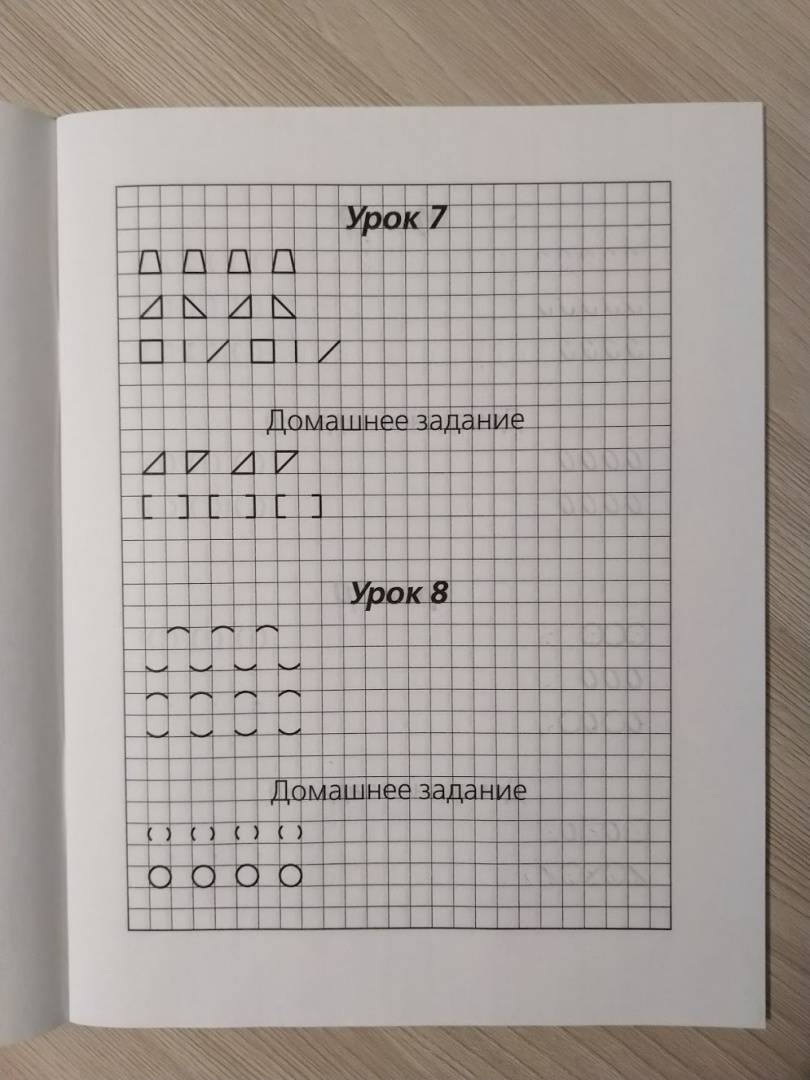 Урок 7
Домашнее задание
Урок 8
Домашнее задание